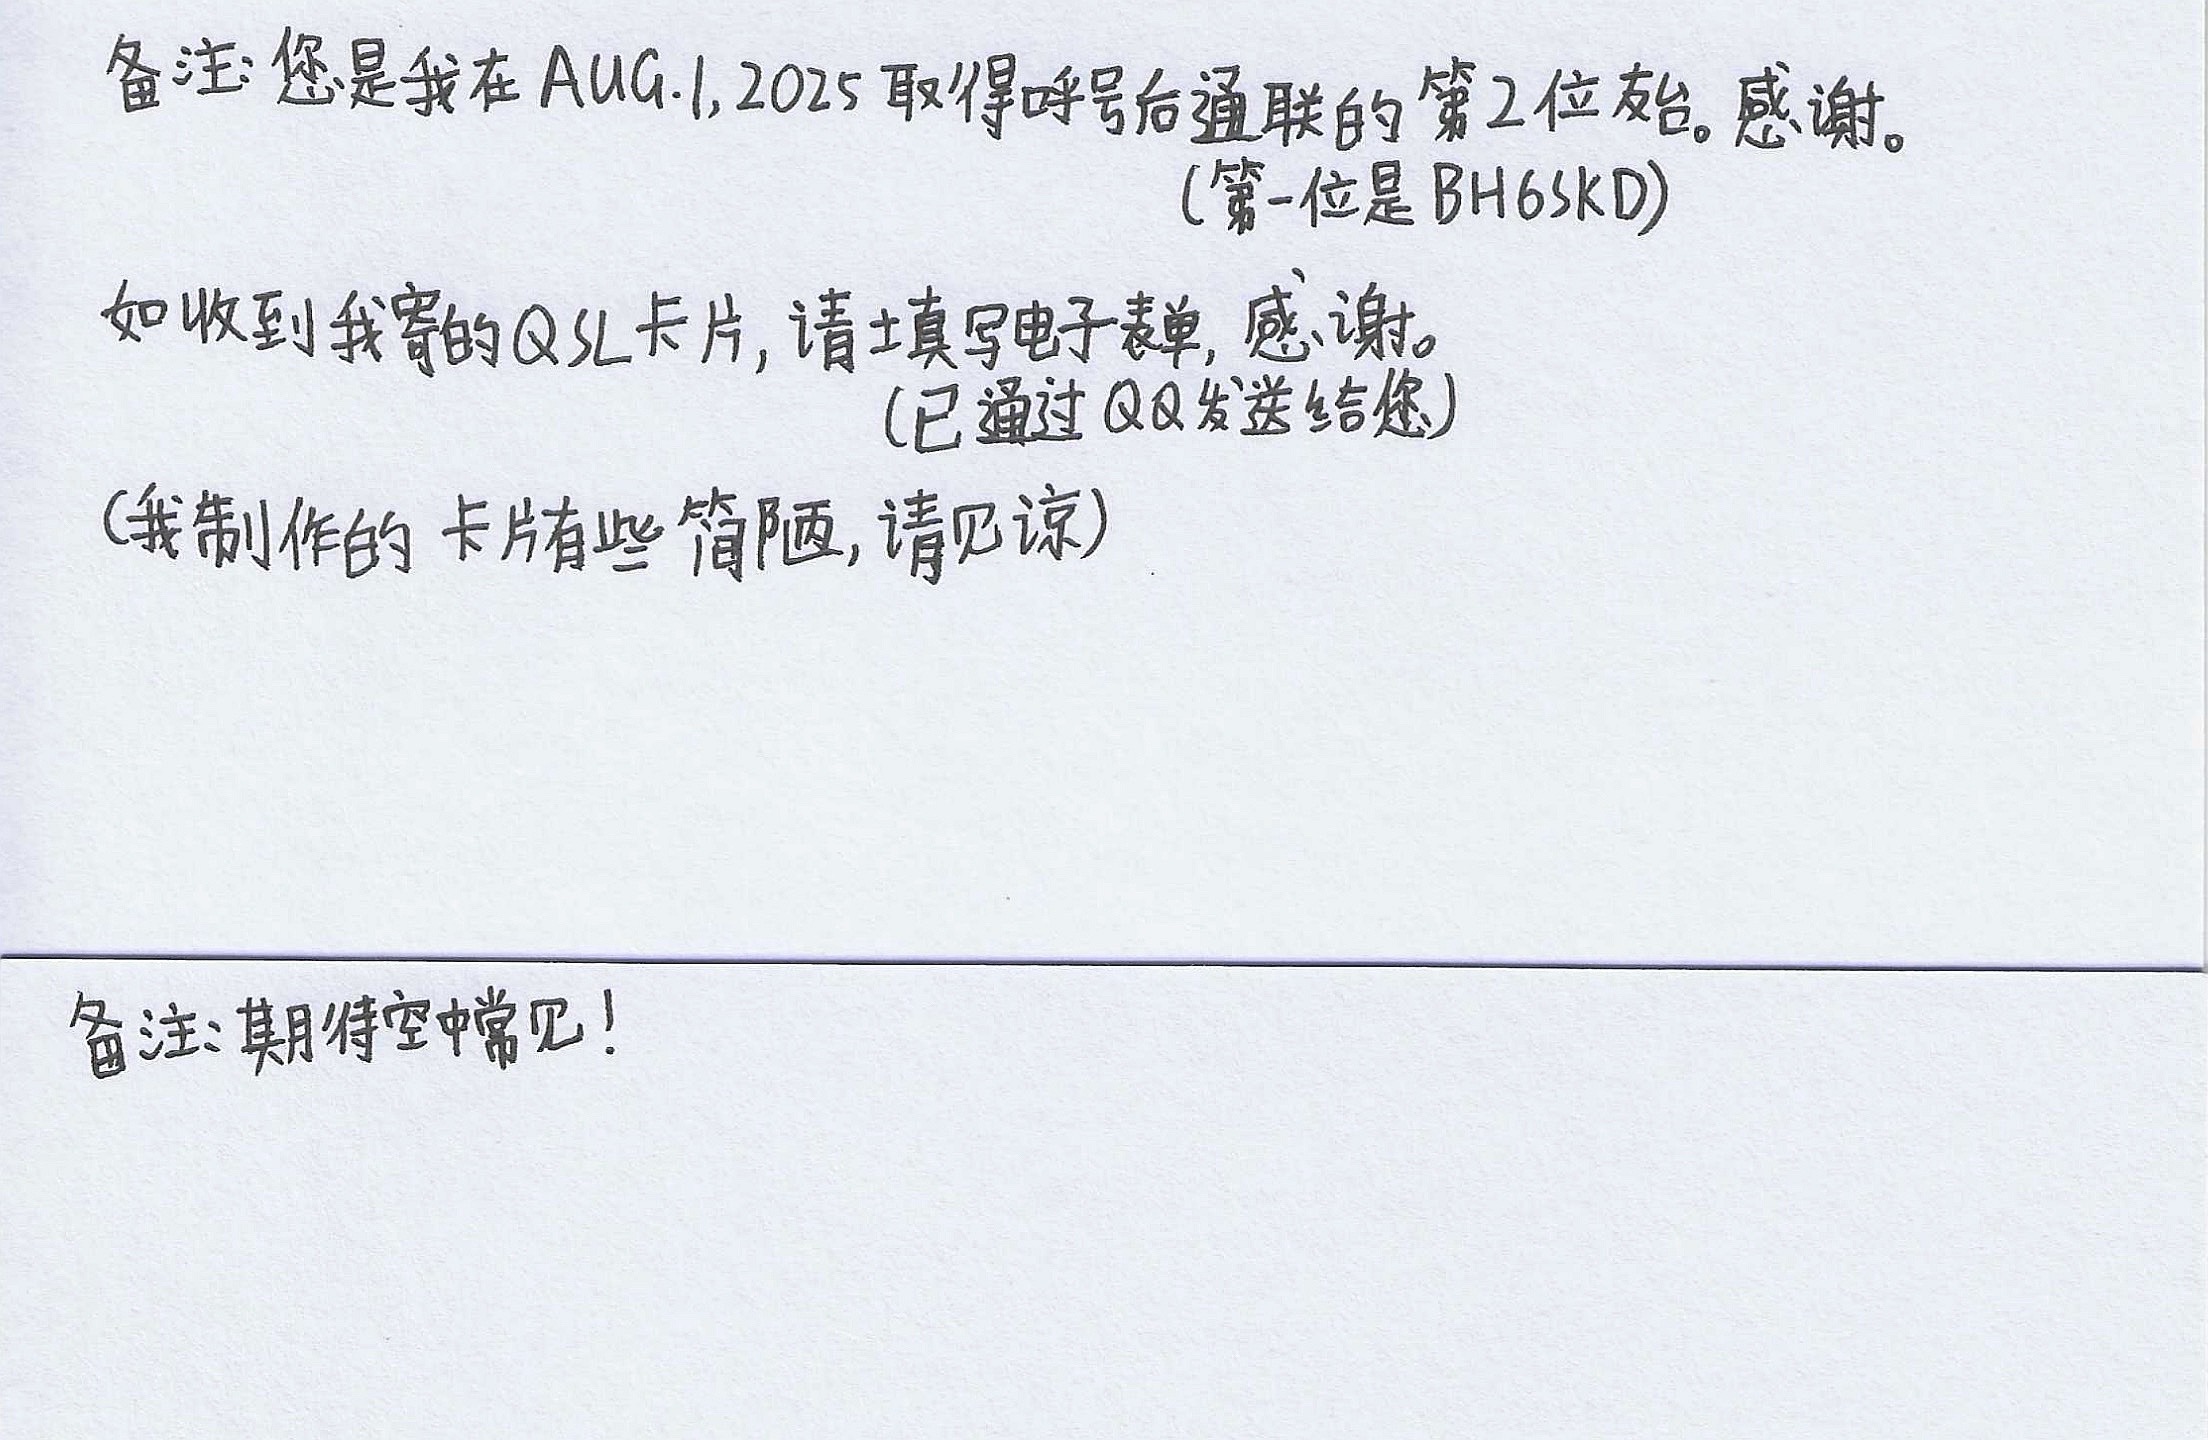 备注:您是我在AUG.1,2025取得呼号后通联的第2位友台。感谢。
(第一位是BH6SKD)
如收到我寄的QSL卡片,请填写电子表单,感谢。
(已通过QQ发送给您)
(我制作的卡片有些简陋,请见谅)
备注:期待空中常见!